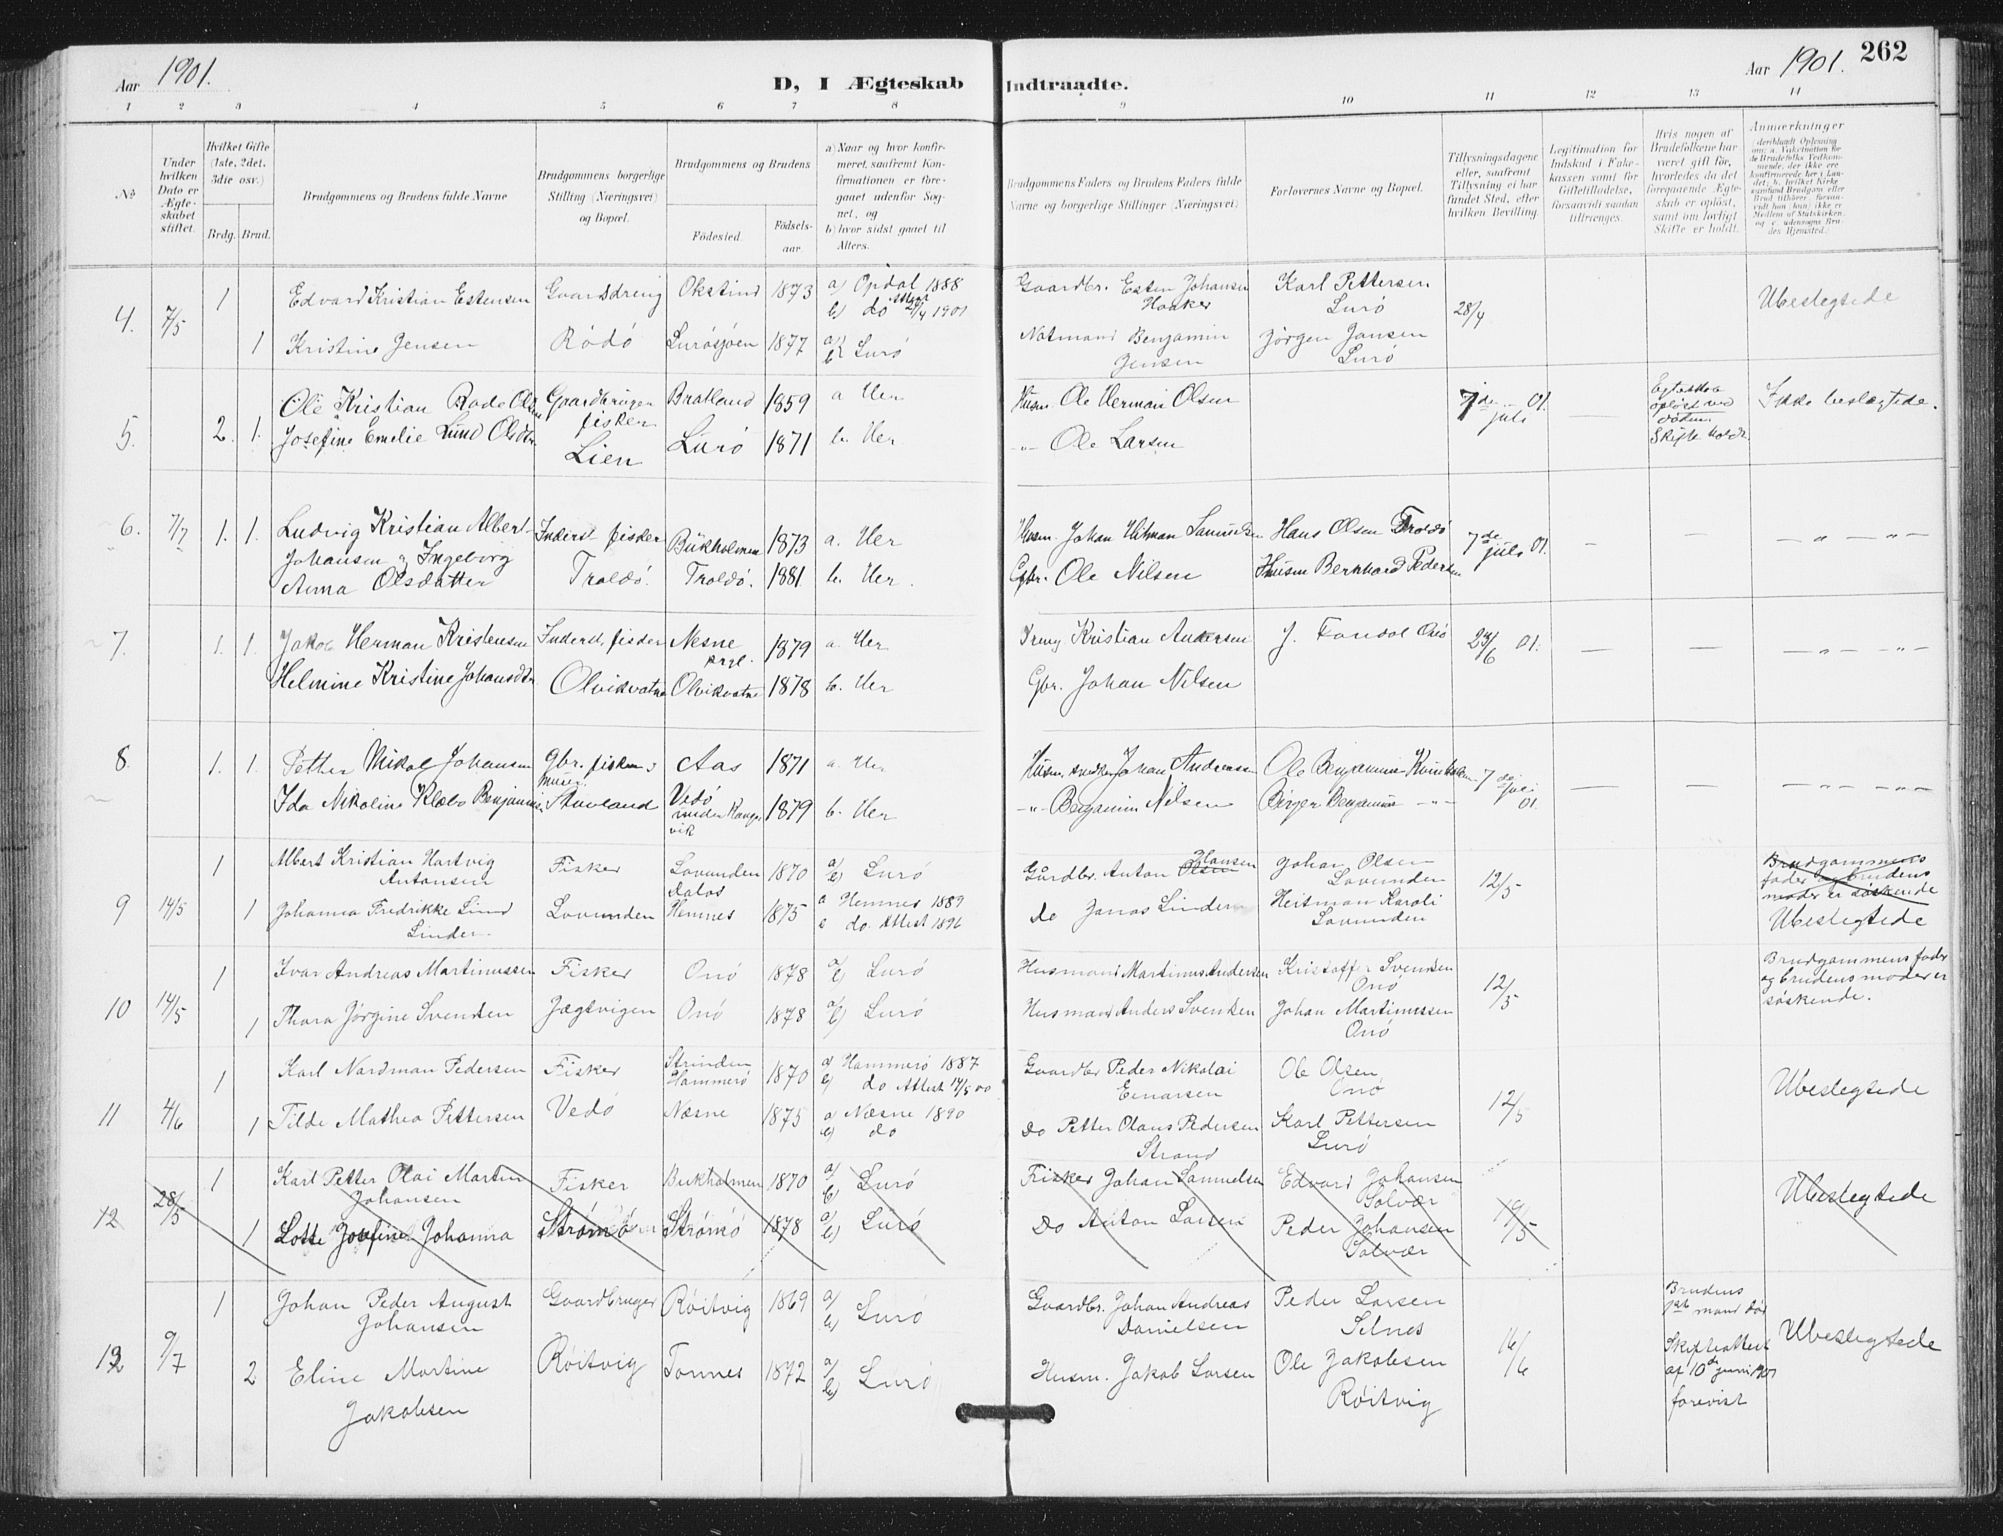 Aar 1901.
D, I Ægteskab Indtraadte.
Aar 1901. 262
1 2 3 4 5 6 7 8 9 10 11 12 13 14
No
Under hvilken Dato er Ægteskabet stiftet.
Hvilket Gifte (1ste, 2det, 3die osv.)
Brdg. Brud.
Brudgommens og Brudens fulde Navne
Brudgommens borgerlige Stilling (Næringsvei) og Bopæl.
Brudgommens og Brudens
Fødested
Fødselsaar
a) Naar og hvor konfirmeret, saafremt Konfirmationen er foregaaet udenfor Sognet, og
b) hvor sidst gaaet til Alters.
Brudgommens Faders og Brudens Faders fulde Navne og borgerlige Stillinger (Næringsvei)
Forlovernes Navne og Bopæl.
Tillysningsdagene eller, saafremt Tillysning ei har fundet Sted, efter hvilken Bevilling.
Legitimation for Indskud i Enkekassen samt for Giftetilladelse, forsaavidt saadan tiltrænges.
Hvis nogen af Brudefolkene har været gift før, hvorledes da det foregaaende Ægteskab er opløst, samt om lovligt Skifte er holdt.
Anmærkninger
4. 7/5 1 Edvard Kristian Estensen Gaardsdreng Okstind 1873 a) Opdal 1888 b) do Attest 24/4 1901 Gaardbr. Esten Johansen Haaker Karl Pettersen Lurö 28/4 Ubeslegtede
1 Kristine Jensen Rödö Lurösjöen 1877 a) b) Lurö Notmand Benjamin Jensen Jörgen Jansen Lurö
5. 2. 1. Ole Kristian Rode Olsen Gaardbruger fisker Bratland 1859 a Her Husm Ole Herman Olsen 7de juli 01. — Egteskab opløst ved døden Skifte holdt. Ikke beslægtede.
Josefine Emelie Lund Olsdtr Lien Lurö 1871 b. Her -"- Ole Larsen
6. 7/7 1. 1. Ludvig Kristian Albert Johansen og Ingeborg Anna Olsdatter Inderst fisker Troldö. Bukholmen 1873 a. Her Husm. Johan Hitman Samuelsen Hans Olsen Troldö 7de juli 01. — — — " — " —
Troldö. 1881 b. Her. Gbr. Ole Nilsen Husm Bernhard Pedersen
7. 1. 1. Jakob Herman Kristensen Inderst, fisker Nesne prgl. 1879 a. Her Dreng Kristian Andersen J. Fondal Onö 23/6 01. — — — " — " —
Helmine Kristine Johansdtr Olvikvatne Olvikvatne 1878 b. Her Gbr. Johan Nilsen
8. 1. 1. Petter Mikal Johansen Gbr. fisker Aas 1871 a. Her Husm. Johan Andreassen Ole Benjamin 7de juli 01. — — — " — " —
Ida Nikoline Klæbo Benjamins. Stuvland Vedö 1879 b. Her -"- Benjamin Nilsen Birger Benjamins -"-
9 14/5 1 Albert Kristian Hartvig Antonsen Fisker Lovunden 1870 a) b) Lurö Gårdbr. Anton Olsen Hansen Johan Olsen Lovunden 12/5 Brudgommens fader og brudens moder er søskende Ubeslegtede
1 Johanna Fredrikke Lind Linder Lovunden Dalos Hemnes 1875 a Hemnes 1889 b do. Attest 1896 do Jonas Linder Heitman Karoli Lovunden
10 14/5 1 Ivar Andreas Martinussen Fisker Onö 1878 a/b) Lurö Husmand Martinus Andersen Kristoffer Svendsen Onö 12/5 Brudgommens fader og brudens moder er søskende.
1 Thora Jörgine Svendsen Jægtvigen Onö 1878 a/b) Lurö Husmand Anders Svendsen Johan Martinussen Onö
11 4/6 1 Karl Nordman Pedersen Fisker Strinden Hammerö 1870 a) Hammerö 1887 b) do Attest 17/5 00 Gaardbr Peder Nikolai Einarsen Ole Olsen Onö 12/5 Ubeslegtede
1 Tilde Mathea Pettersen Vedö Næsne 1875 a) Næsne 1890 b) do Do Petter Olaus Pedersen Strand Karl Pettersen Lurö
12 28/5 1 Karl Petter Olai Martin Johansen Fisker Bukholmen 1870 a/b) Lurö Fisker Johan Samuelsen Edvard Johansen Solvær 19/5 Ubeslegtede
1 Lotte Josefine Johanna Strömö Strömö 1878 a/b) Lurö Do Anton Larsen Peder Johansen Solvær
12 9/7 1 Johan Peder August Johansen Gaardbruger Röitvig 1869 a/b) Lurö Gaardbr. Johan Andreas Danielsen Peder Larsen Selnes 16/6 Brudens 1ste mand död Skifteattest af 10de juni 1901 forevist Ubeslegtede
2 Eline Martine Jakobsen Röitvig Tonnes 1872 a/b) Lurö Husm. Jakob Larsen Ole Jakobsen Röitvig